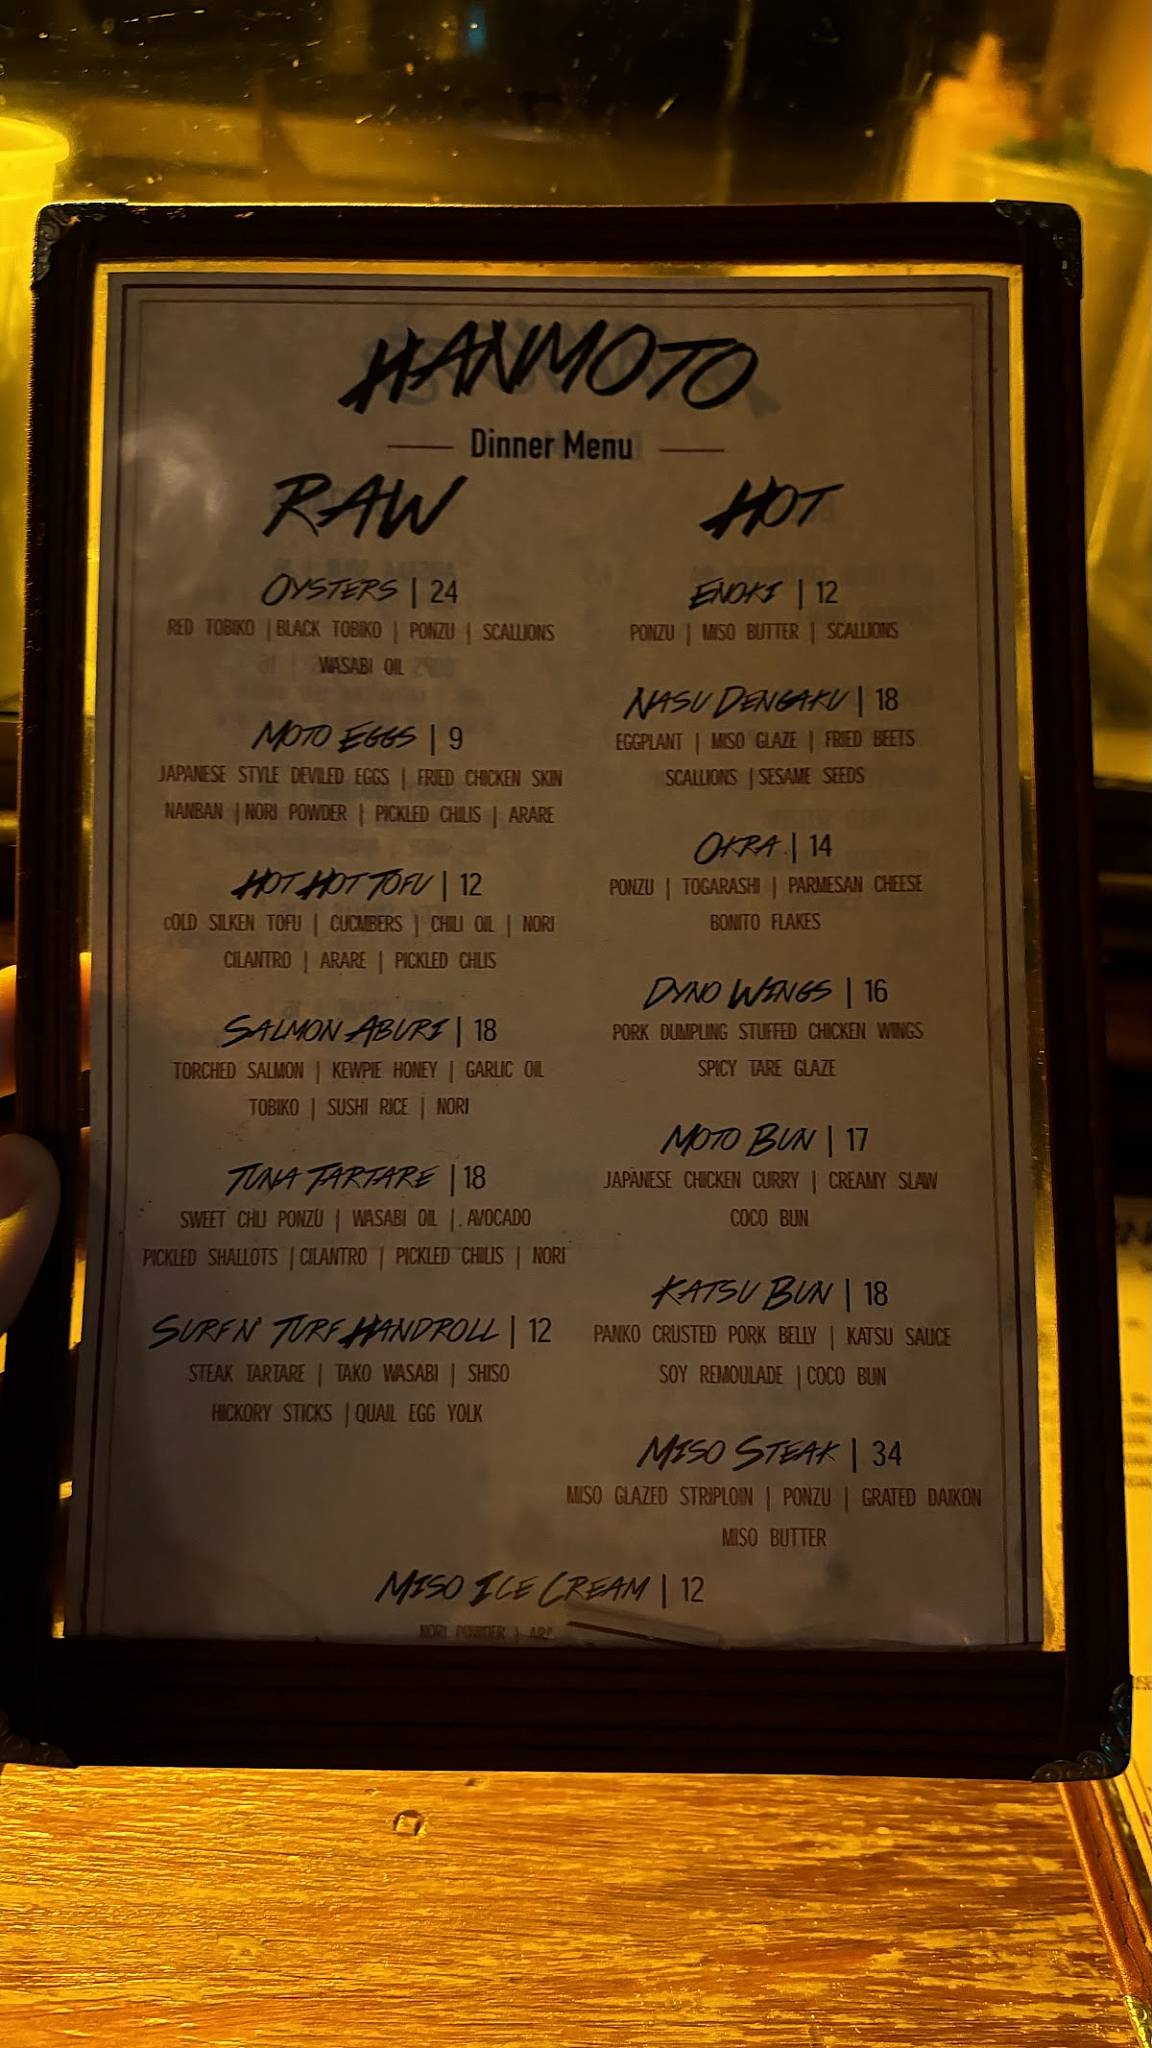 HANMOTO
Dinner Menu
RAW
OYSTERS | 24
RED TOBIKO | BLACK TOBIKO | PONZU | SCALLIONS
WASABI OIL
MOTO EGGS | 9
JAPANESE STYLE DEVILED EGGS | FRIED CHICKEN SKIN
NANBAN | NORI POWDER | PICKLED CHILIS | ARARE
HOT HOT TOFU | 12
COLD SILKEN TOFU | CUCMBERS | CHILI OIL | NORI
CILANTRO | ARARE | PICKLED CHLIS
SALMON ABURI | 18
TORCHED SALMON | KEWPIE HONEY | GARLIC OIL
TOBIKO | SUSHI RICE | NORI
TUNA TARTARE | 18
SWEET CHLI PONZU | WASABI OIL | . AVOCADO
PICKLED SHALLOTS | CILANTRO | PICKLED CHILIS | NORI
SURF N' TURF HANDROLL | 12
STEAK TARTARE | TAKO WASABI | SHISO
HICKORY STICKS | QUAIL EGG YOLK
HOT
ENOKI | 12
PONZU | MISO BUTTER | SCALLIONS
NASU DENGAKU | 18
EGGPLANT | MISO GLAZE | FRIED BEETS
SCALLIONS | SESAME SEEDS
OKRA | 14
PONZU | TOGARASHI | PARMESAN CHEESE
BONITO FLAKES
DYNO WINGS | 16
PORK DUMPLING STUFFED CHICKEN WINGS
SPICY TARE GLAZE
MOTO BUN | 17
JAPANESE CHICKEN CURRY | CREAMY SLAW
COCO BUN
KATSU BUN | 18
PANKO CRUSTED PORK BELLY | KATSU SAUCE
SOY REMOULADE | COCO BUN
MISO STEAK | 34
MISO GLAZED STRIPLOIN | PONZU | GRATED DAIKON
MISO BUTTER
MISO ICE CREAM | 12
NORI POWDER |